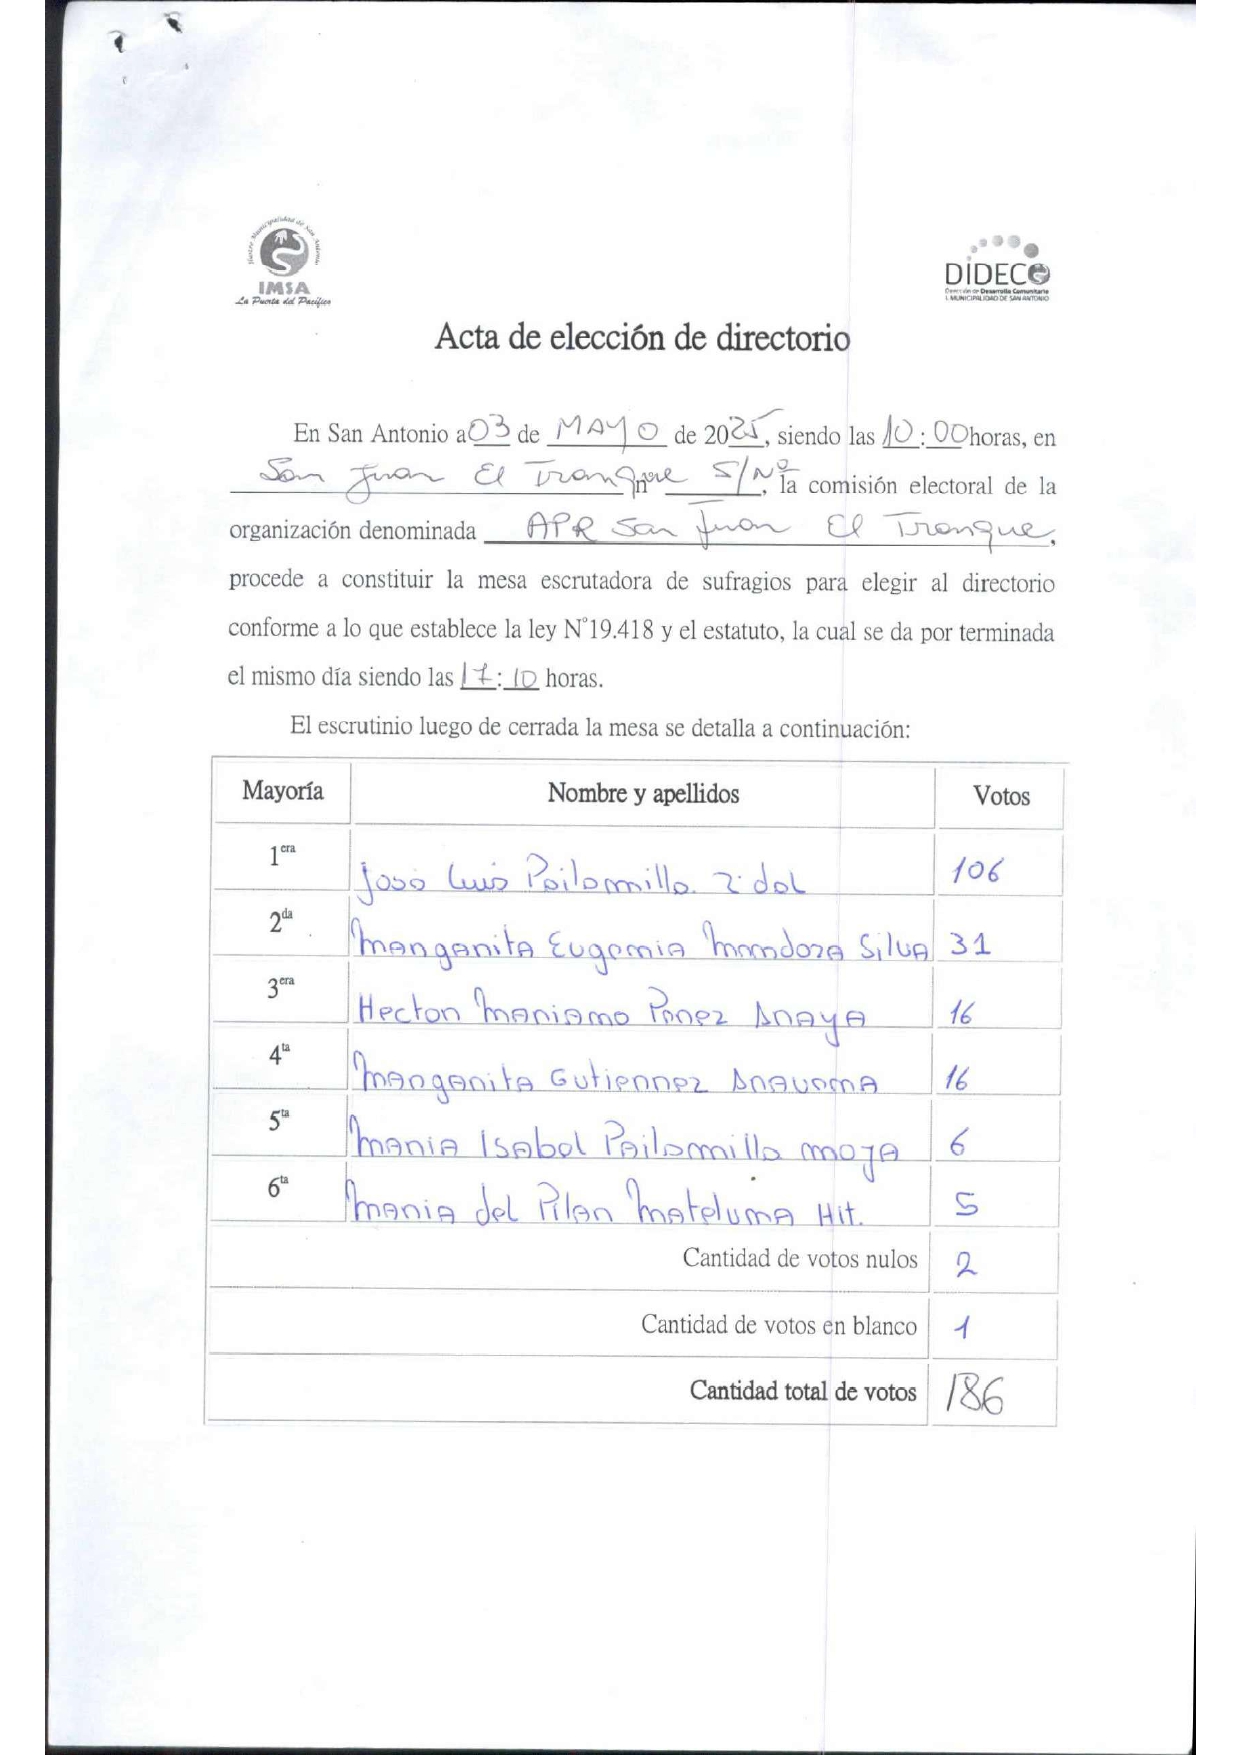 Ilustre Municipalidad de San Antonio
IMSA
La Puerta del Pacífico
DIDECO
Dirección de Desarrollo Comunitario
I. MUNICIPALIDAD DE SAN ANTONIO
Acta de elección de directorio
En San Antonio a 03 de MAYO de 2025, siendo las 10:00 horas, en
San Juan El Tranque nº S/Nº, la comisión electoral de la
organización denominada APR San Juan El Tranque,
procede a constituir la mesa escrutadora de sufragios para elegir al directorio
conforme a lo que establece la ley N°19.418 y el estatuto, la cual se da por terminada
el mismo día siendo las 17:10 horas.
El escrutinio luego de cerrada la mesa se detalla a continuación:
Mayoría Nombre y apellidos Votos
1era José Luis Pailamilla 106
2da Margarita Eugenia Mendoza Silva 31
3era Hector Mariano Perez Anaya 16
4ta Margarita Gutierrez Aravena 16
5ta Maria Isabel Pailamilla Moya 6
6ta Maria del Pilar Mateluna Hit. 5
Cantidad de votos nulos 2
Cantidad de votos en blanco 1
Cantidad total de votos 186